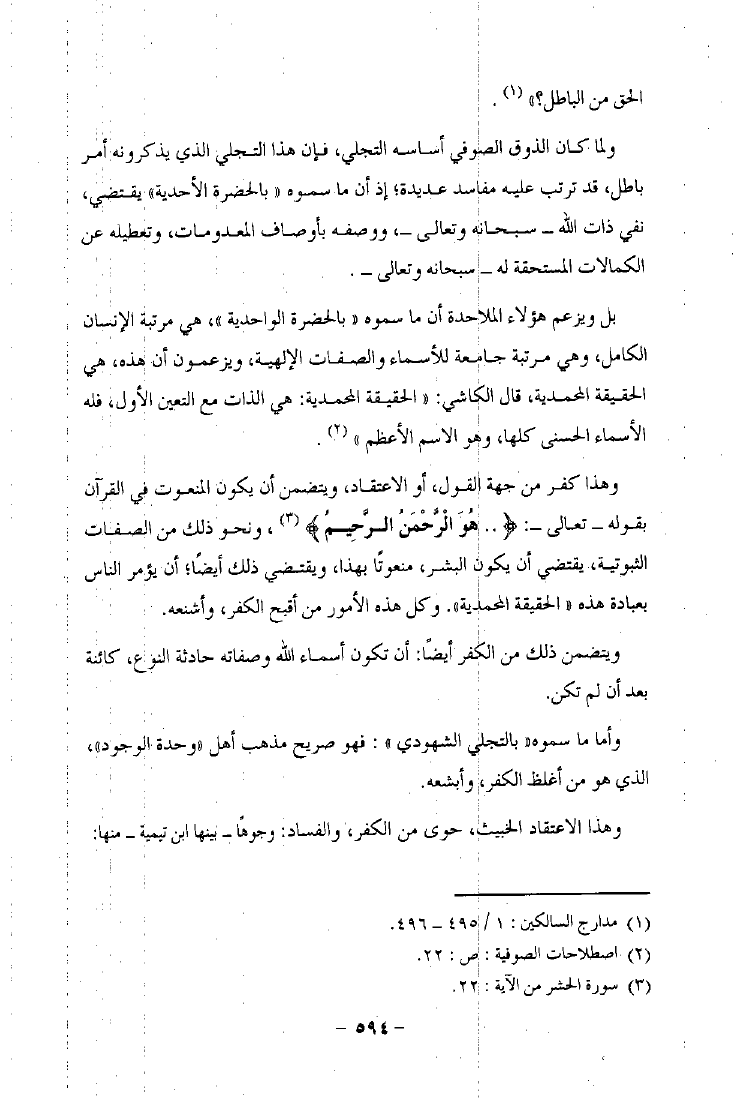 الحق من الباطل؟» (١) .
ولما كـان الذوق الصوفي أسـاسـه التجلي، فـإن هذا التـجلي الذي يذكرونه أمـر
باطل، قد ترتب عليـه مفـاسد عـديدة؛ إذ أن ما سمـوه « بالحضرة الأحدية» يقـتضي،
نفي ذات الله ـ سـبـحـانه وتعـالى ـ، ووصفـه بأوصـاف المعـدومـات، وتعطيله عن
الكمالات المستحقة له ـ سبحانه وتعالى ـ .
بل ويزعم هؤلاء الملاحدة أن ما سموه « بالحضرة الواحدية »، هي مرتبة الإنسان
الكامل، وهي مـرتبة جـامـعة للأسماء والصـفـات الإلهيـة، ويزعمـون أن هذه، هي
الحقـيقة المحمـدية، قال الكاشي: « الحقيـقة المحمدية: هي الذات مع التعين الأول، فله
الأسماء الحسنى كلها، وهو الاسم الأعظم » (٢) .
وهذا كفـر من جهة القـول، أو الاعتقـاد، ويتضمن أن يكون المنعوت في القرآن
بقوله ـ تعـالى ـ: ﴿ .. هُوَ الْرَّحْمَنُ الـرَّحِيـمُ ﴾ (٣) ، ونحـو ذلك من الصـفـات
الثبوتيـة، يقتضي أن يكون البشر، منعوتًا بهذا، ويقتـضي ذلك أيضًا؛ أن يؤمر الناس
بعبادة هذه « الحقيقة المحمدية». وكل هذه الأمور من أقبح الكفر، وأشنعه.
ويتضمن ذلك من الكفر أيضًا: أن تكون أسمـاء الله وصفاته حادثة النوع، كائنة
بعد أن لم تكن.
وأما ما سموه« بالتجلي الشهودي » : فهو صريح مذهب أهل «وحدة الوجود»،
الذي هو من أغلظ الكفر، وأبشعه.
وهذا الاعتقاد الخبيث، حوى من الكفر، والفساد: وجوهًا ـ بينها ابن تيمية ـ منها:
(١) مدارج السالكين : ١ / ٤٩٥ ـ ٤٩٦.
(٢) اصطلاحات الصوفية : ص : ٢٢.
(٣) سورة الحشر من الآية : ٢٢.
ـ ٥٩٤ ـ